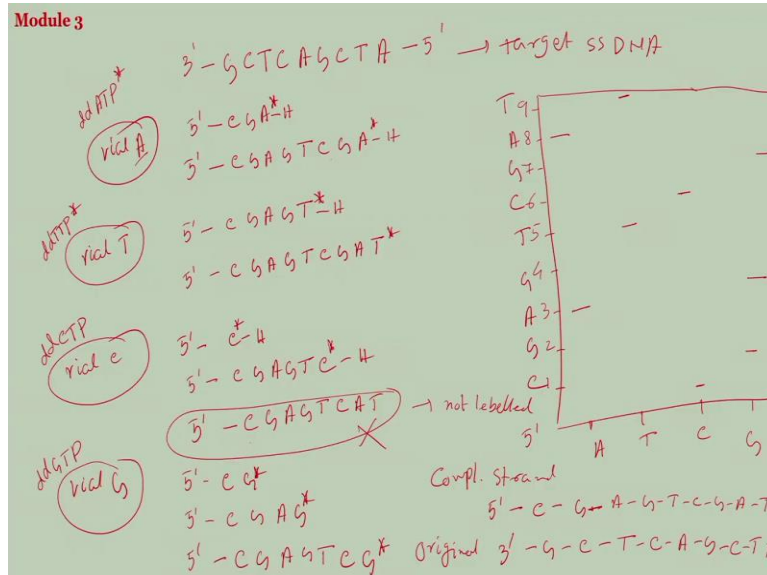 Module 3
3' - GCTCAGCTA - 5' → target ssDNA
ddATP*
vial A
5' - CGA*-H
5' - CGAGTCGA*-H
ddTTP*
vial T
5' - CGAGT*-H
5' - CGAGTCGAT*
ddCTP
vial C
5' - C*-H
5' - CGAGTC*-H
5' - CGAGTCAT → not labelled
ddGTP
vial G
5' - CG*
5' - CGAG*
5' - CGAGTCG*
T9
A8
G7
C6
T5
G4
A3
G2
C1
5'
A T C G
Compl. Strand
5' - C - G - A - G - T - C - G - A - T
Original 3' - G - C - T - C - A - G - C - T